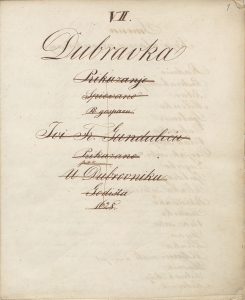 VII.
Dubravka
Prikazanje
Spievano
Po gosparu
Ivi Fr. Gunduliću
Prikazano
U Dubrovniku
Godišta
1628.